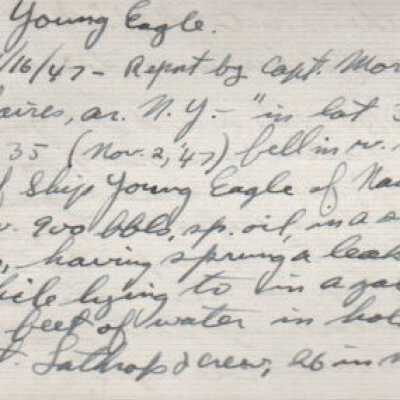 Young Eagle.
/16/47 - Report by Capt. Mor
aires, ar. N.Y. - "in lat 3
35 (Nov. 2, '47) fell in w.
f Ship Young Eagle of Nan
w. 900 bbls. sp. oil, in a s
, having sprung a leak
hile lying to in a gal
feet of water in hol
t. Lathrop & crew, 26 in